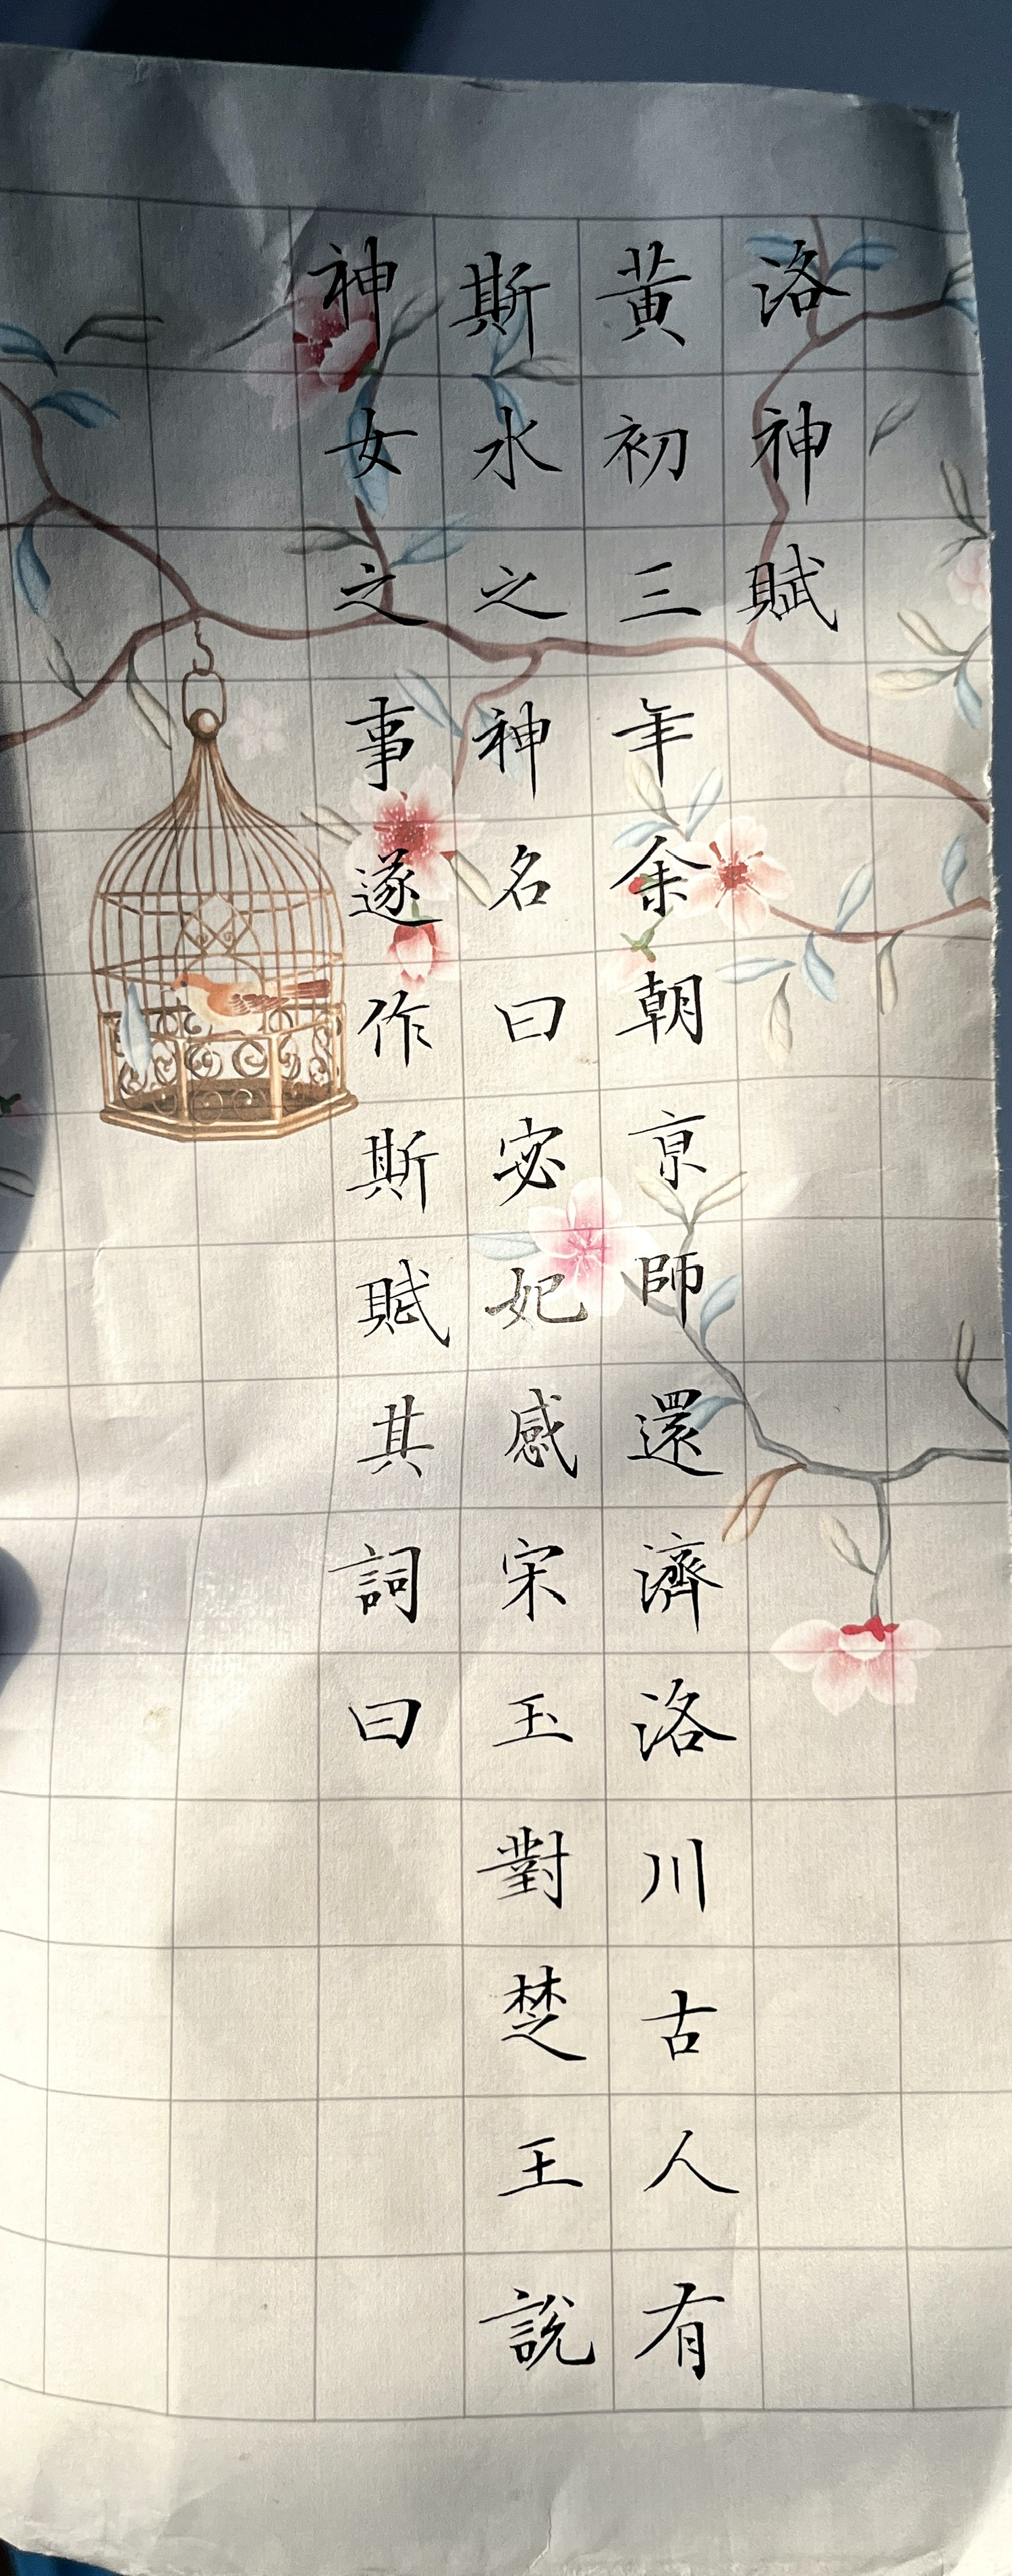 洛神賦
黄初三年余朝京師還濟洛川古人有
斯水之神名曰宓妃感宋玉對楚王說
神女之事遂作斯賦其詞曰